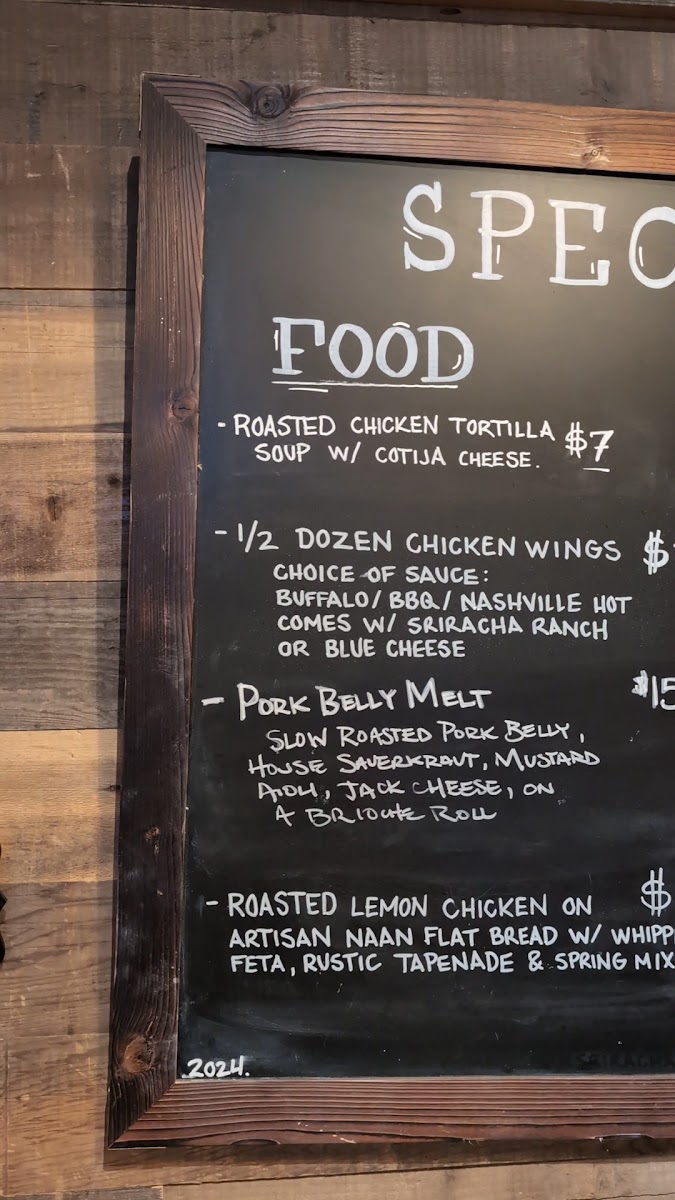 SPEC
FOOD
- ROASTED CHICKEN TORTILLA $7
SOUP W/ COTIJA CHEESE.
- 1/2 DOZEN CHICKEN WINGS $
CHOICE OF SAUCE:
BUFFALO/BBQ/NASHVILLE HOT
COMES W/ SRIRACHA RANCH
OR BLUE CHEESE
- PORK BELLY MELT $15
SLOW ROASTED PORK BELLY,
HOUSE SAUERKRAUT, MUSTARD
AIOLI, JACK CHEESE, ON
A BRIOCHE ROLL
- ROASTED LEMON CHICKEN ON $
ARTISAN NAAN FLAT BREAD W/ WHIPP
FETA, RUSTIC TAPENADE & SPRING MIX
.2024.